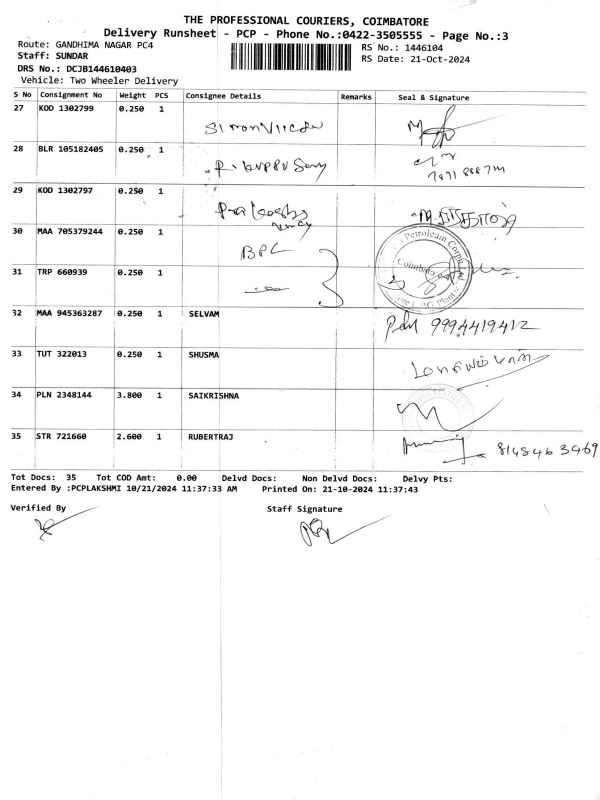 THE PROFESSIONAL COURIERS, COIMBATORE
Delivery Runsheet - PCP - Phone No.:0422-3505555 - Page No.:3
Route: GANDHIMA NAGAR PC4
RS No.: 1446104
Staff: SUNDAR
RS Date: 21-Oct-2024
DRS No.: DCJB144610403
Vehicle: Two Wheeler Delivery
S No Consignment No Weight PCS Consignee Details Remarks Seal & Signature
27 KOD 1302799 0.250 1
28 BLR 105182405 0.250 1
29 KOD 1302797 0.250 1
30 MAA 705379244 0.250 1 BPC
31 TRP 660939 0.250 1
Petroleum Corp
Coimbato
32 MAA 945363287 0.250 1 SELVAM 9994419412
33 TUT 322013 0.250 1 SHUSMA
34 PLN 2348144 3.800 1 SAIKRISHNA
35 STR 721660 2.600 1 RUBERTRAJ 8148463469
Tot Docs: 35 Tot COD Amt: 0.00 Delvd Docs: Non Delvd Docs: Delvy Pts:
Entered By :PCPLAKSHMI 10/21/2024 11:37:33 AM Printed On: 21-10-2024 11:37:43
Verified By Staff Signature